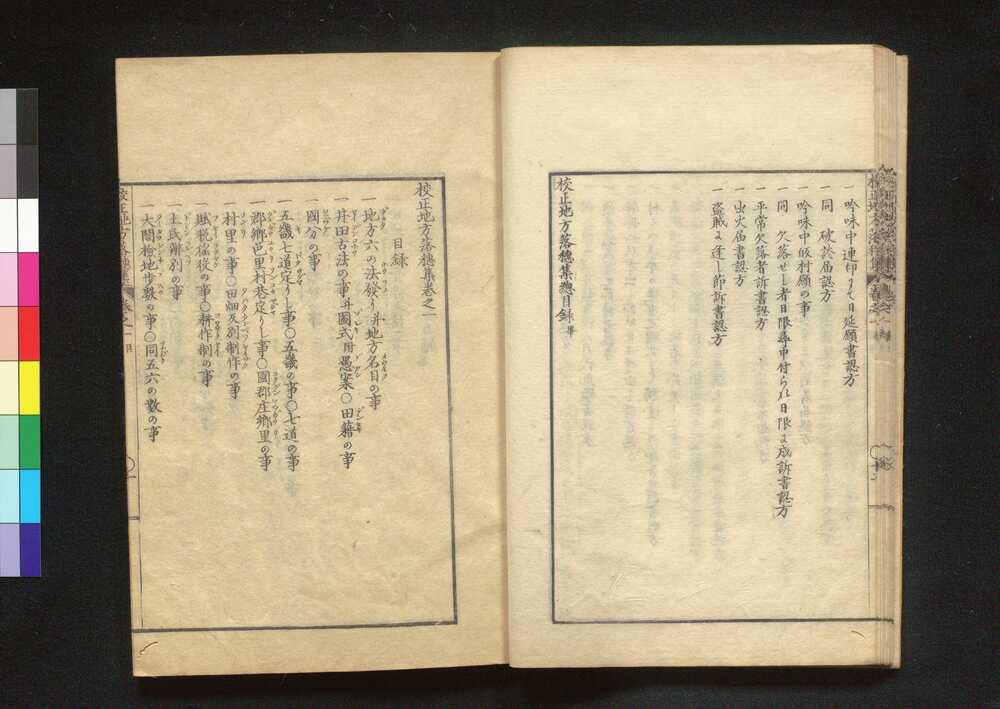 一 吟味中連印ニて日延願書認方
一 同 破於届認方
一 吟味中皈村願の事
一 同 欠落せし者日限尋申付られ日限ニ成訴書認方
一 平常欠落者訴書認方
一 出火届書認方
一 盗賊ニ逢し節訴書認方
校正地方落穂集總目録 畢
校正地方落穂集巻之一
目録
一 地方六の法發り并地方名目の事
一 井田古法の事并圖式附愚案〇田籍の事
一 國分の事
一 五畿七道定りし事〇五畿の事〇七道の事
一 郡郷邑里村巷定りし事〇國郡庄郷里の事
一 村里の事〇田畑又別制作の事
一 賦税徭役の事〇耕作制の事
一 土民辨別の事
一 大閤檢地歩数の事〇同五六の数の事